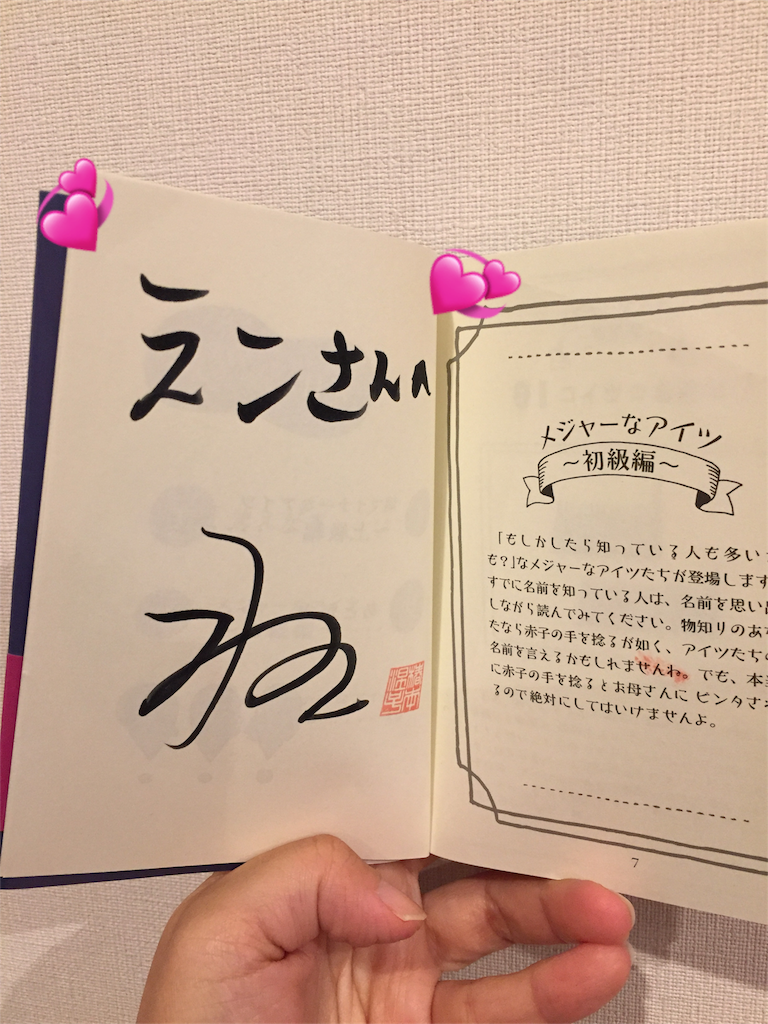 えンさんへ
メジャーなアイツ
～初級編～
「もしかしたら知っている人も多い
も？」なメジャーなアイツたちが登場します
すでに名前を知っている人は、名前を思い出
しながら読んでみてください。物知りのあな
たなら赤子の手を捻るが如く、アイツたちの
名前を言えるかもしれませんね。でも、本当
に赤子の手を捻るとお母さんにビンタされ
るので絶対にしてはいけませんよ。
7